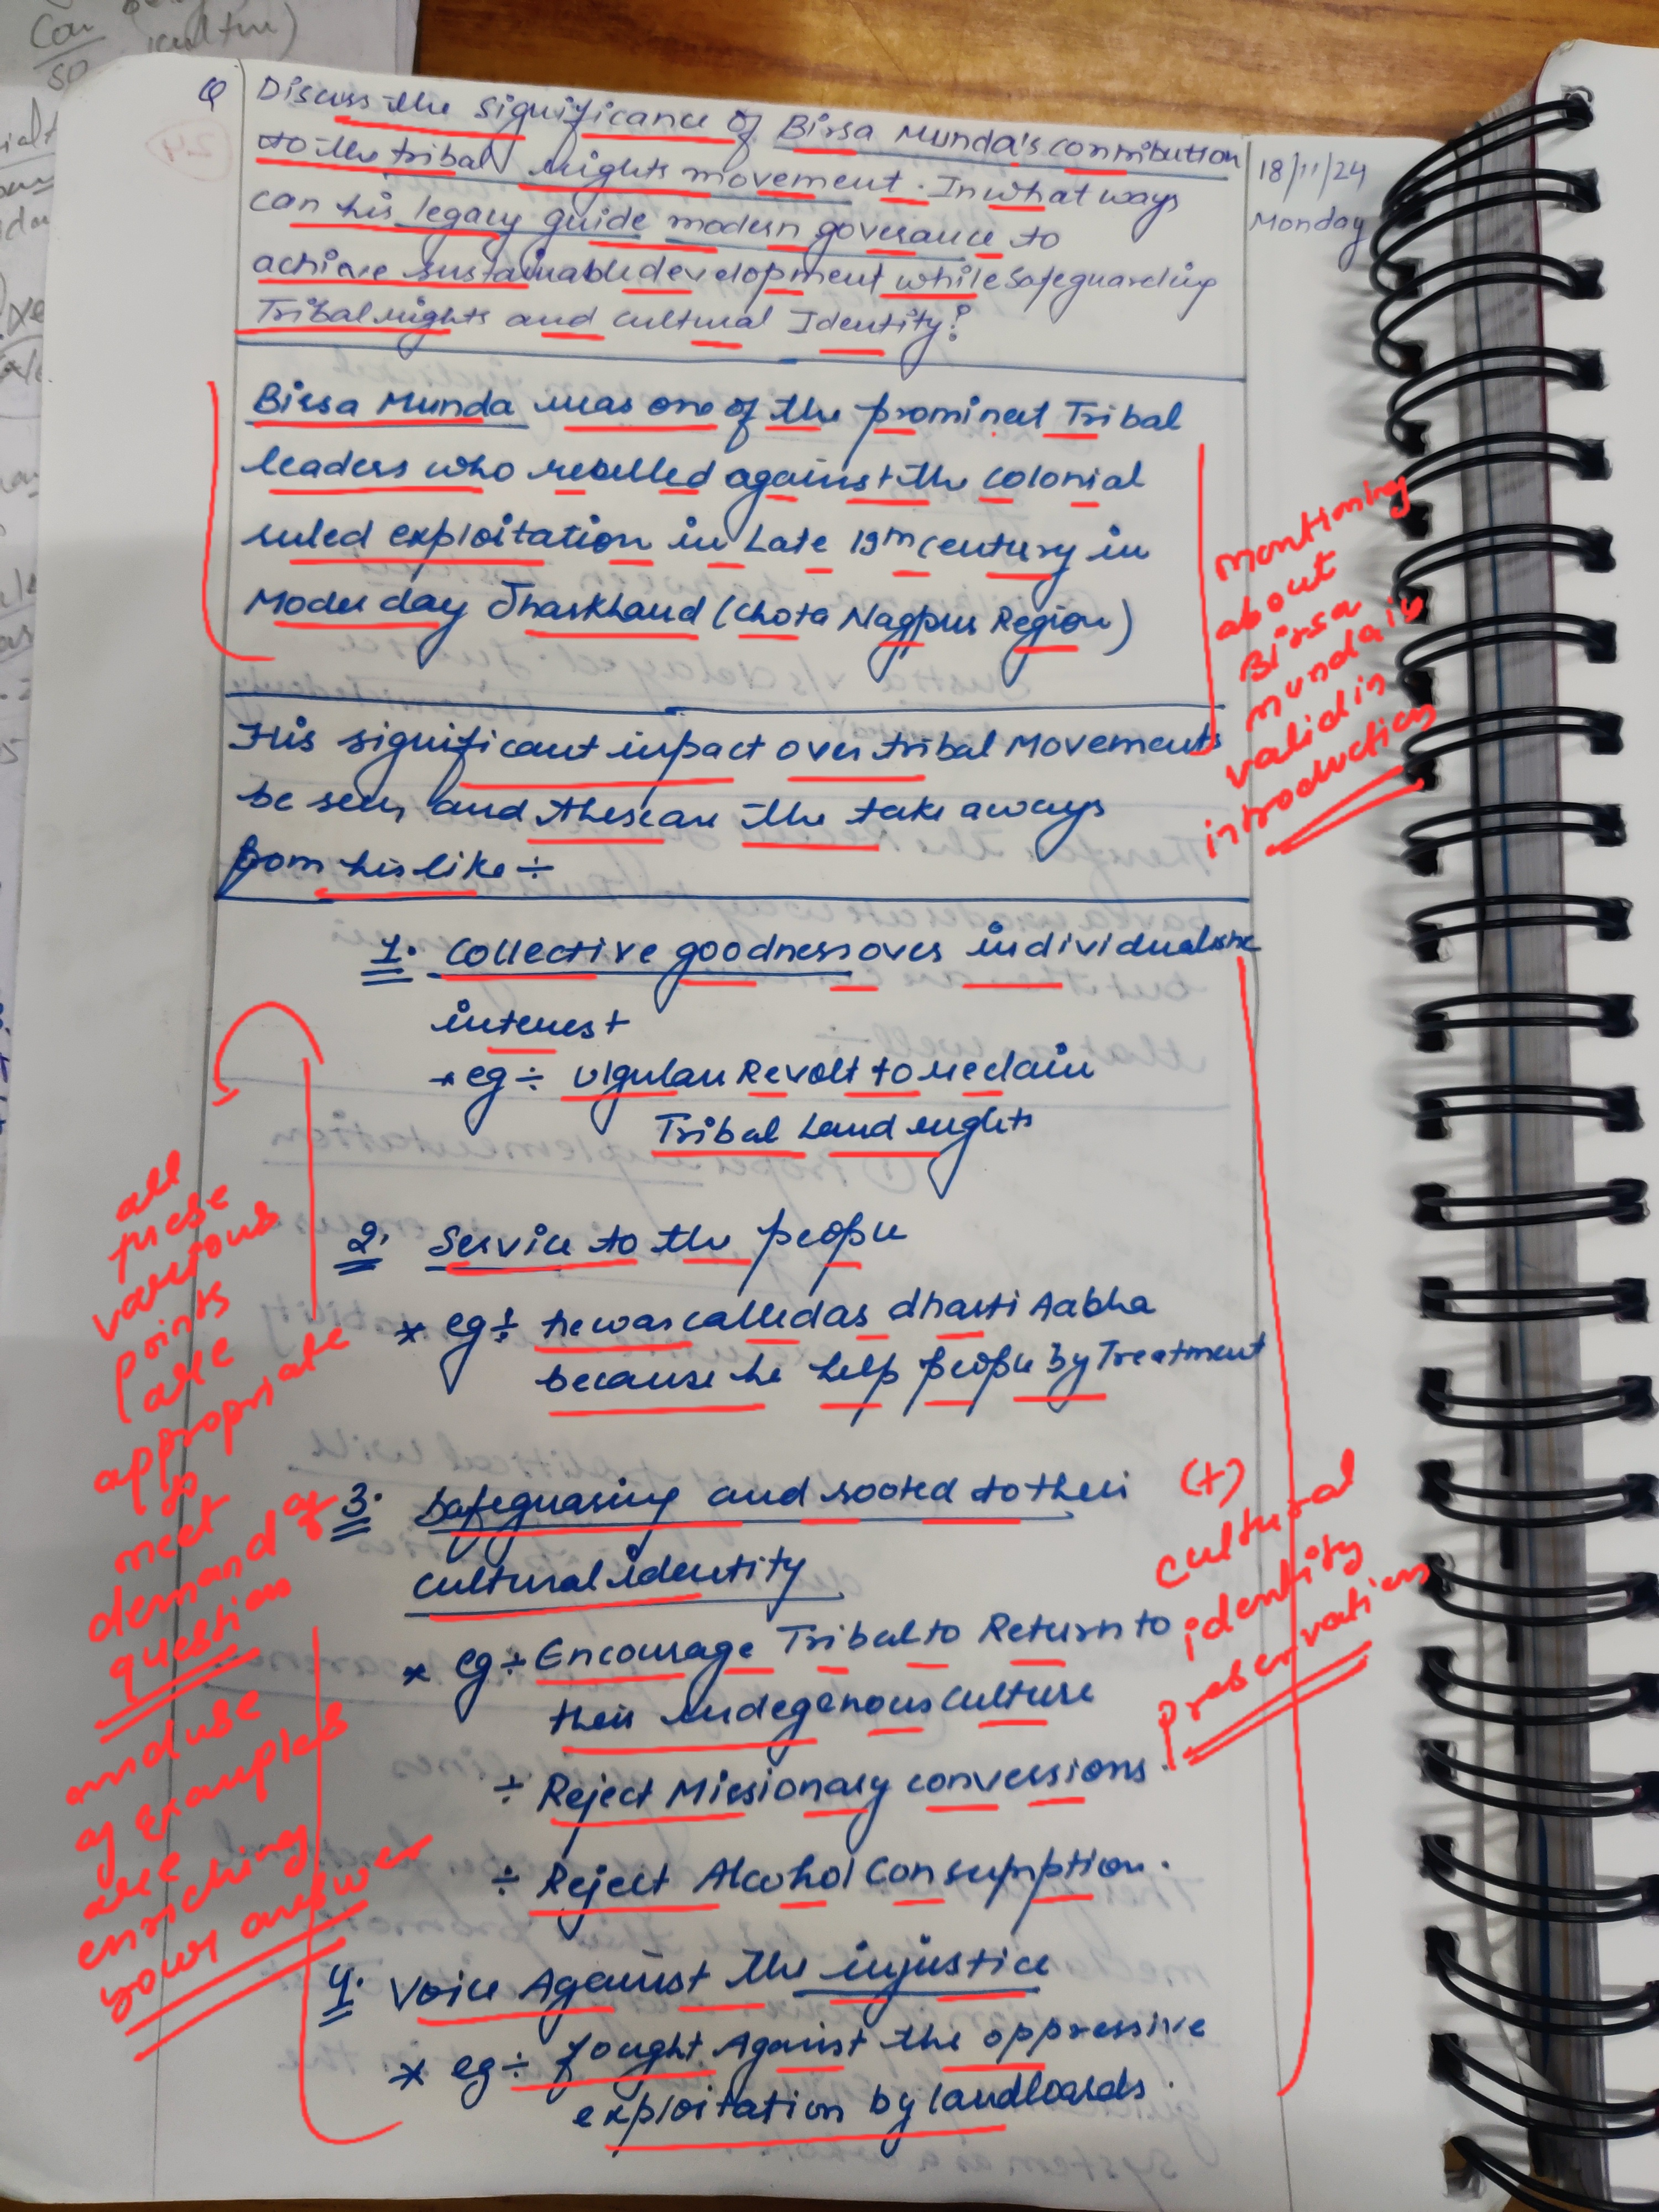 Q Discuss the significance of Birsa Munda's contribution
to the tribal rights movement. In what ways
can his legacy guide modern goverance to
achieve sustainable development while safeguarding
Tribal rights and cultural Identity?
18/11/24
Monday
Birsa Munda was one of the prominent Tribal
leaders who rebelled against the colonial
ruled exploitation in Late 19th century in
Moder day Jharkhand (Chota Nagpur Region)
mentioning
about
Birsa
munda is
valid in
introduction
His significant impact over tribal Movements
be seen and these are the take aways
from his like ÷
1. Collective goodness over individualistic
interest
* eg ÷ Ulgulan Revolt to reclaim
Tribal Land rights
2. Service to the people
* eg ÷ he was called as dharti Aabha
because he help people by Treatment
all
these
various
points
are
appropriate
to
meet
demand of
question
and use
of examples
are
enriching
your answer
3. Safeguaring and rooted to their
cultural identity
* eg ÷ Encourage Tribal to Return to
their indegenous culture
÷ Reject Missionary conversions.
÷ Reject Alcohol Consumption.
(+)
cultural
identity
preservation
4. Voice Against the injustice
* eg ÷ fought Against the oppressive
exploitation by landloards.